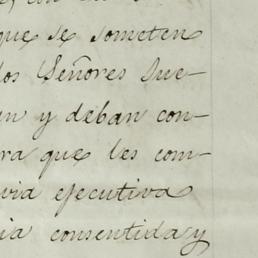 que se someten
los Señores Jue-
en y deban con-
ra que les com-
via ejecutiva
ia consentida y